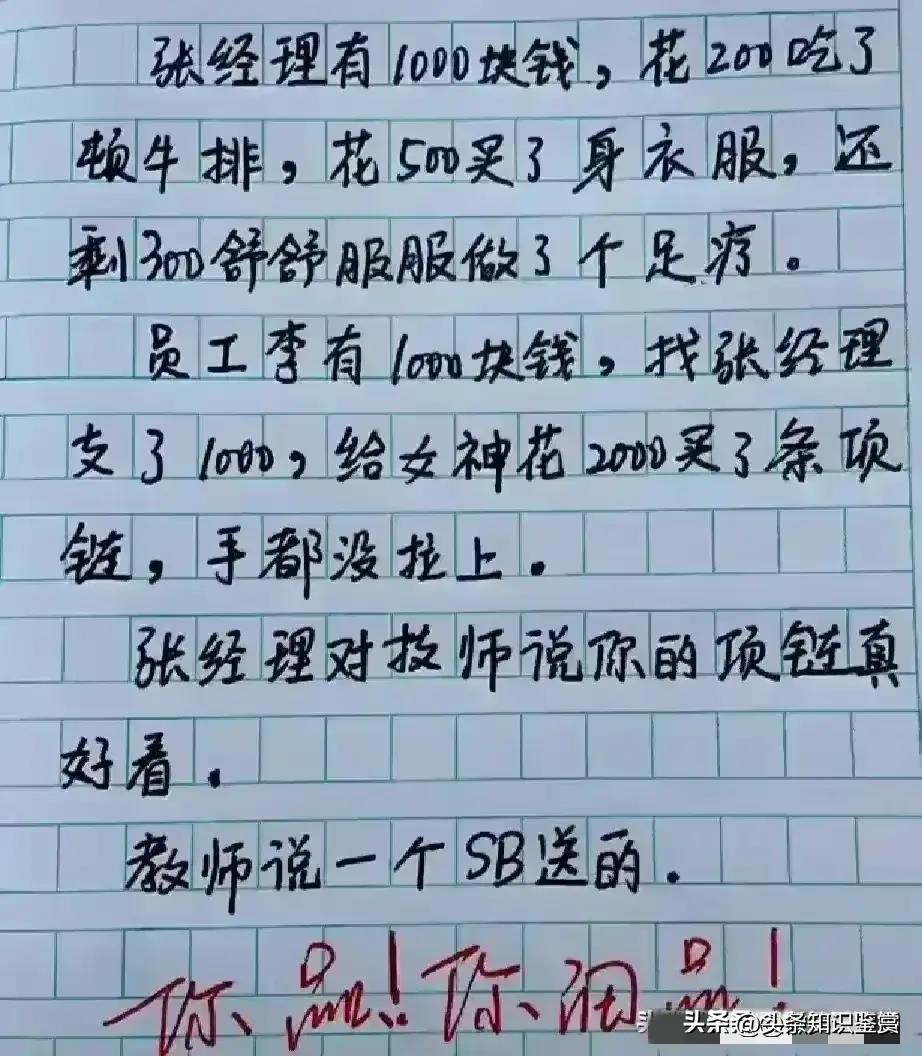 张经理有1000块钱，花200吃了
顿牛排，花500买了身衣服，还
剩300舒舒服服做了个足疗。
员工李有1000块钱，找张经理
支了1000，给女神花2000买了条项
链，手都没拉上。
张经理对技师说你的项链真
好看。
教师说一个SB送的.
你品！你细品！
头条@头条知识鉴赏